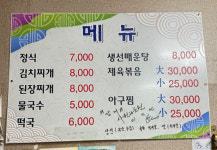 메 뉴
정식 7,000
김치찌개 8,000
된장찌개 8,000
물국수 5,000
떡국 6,000
생선매운탕 8,000
제육볶음 大 30,000
小 25,000
아구찜 大 30,000
小 25,000